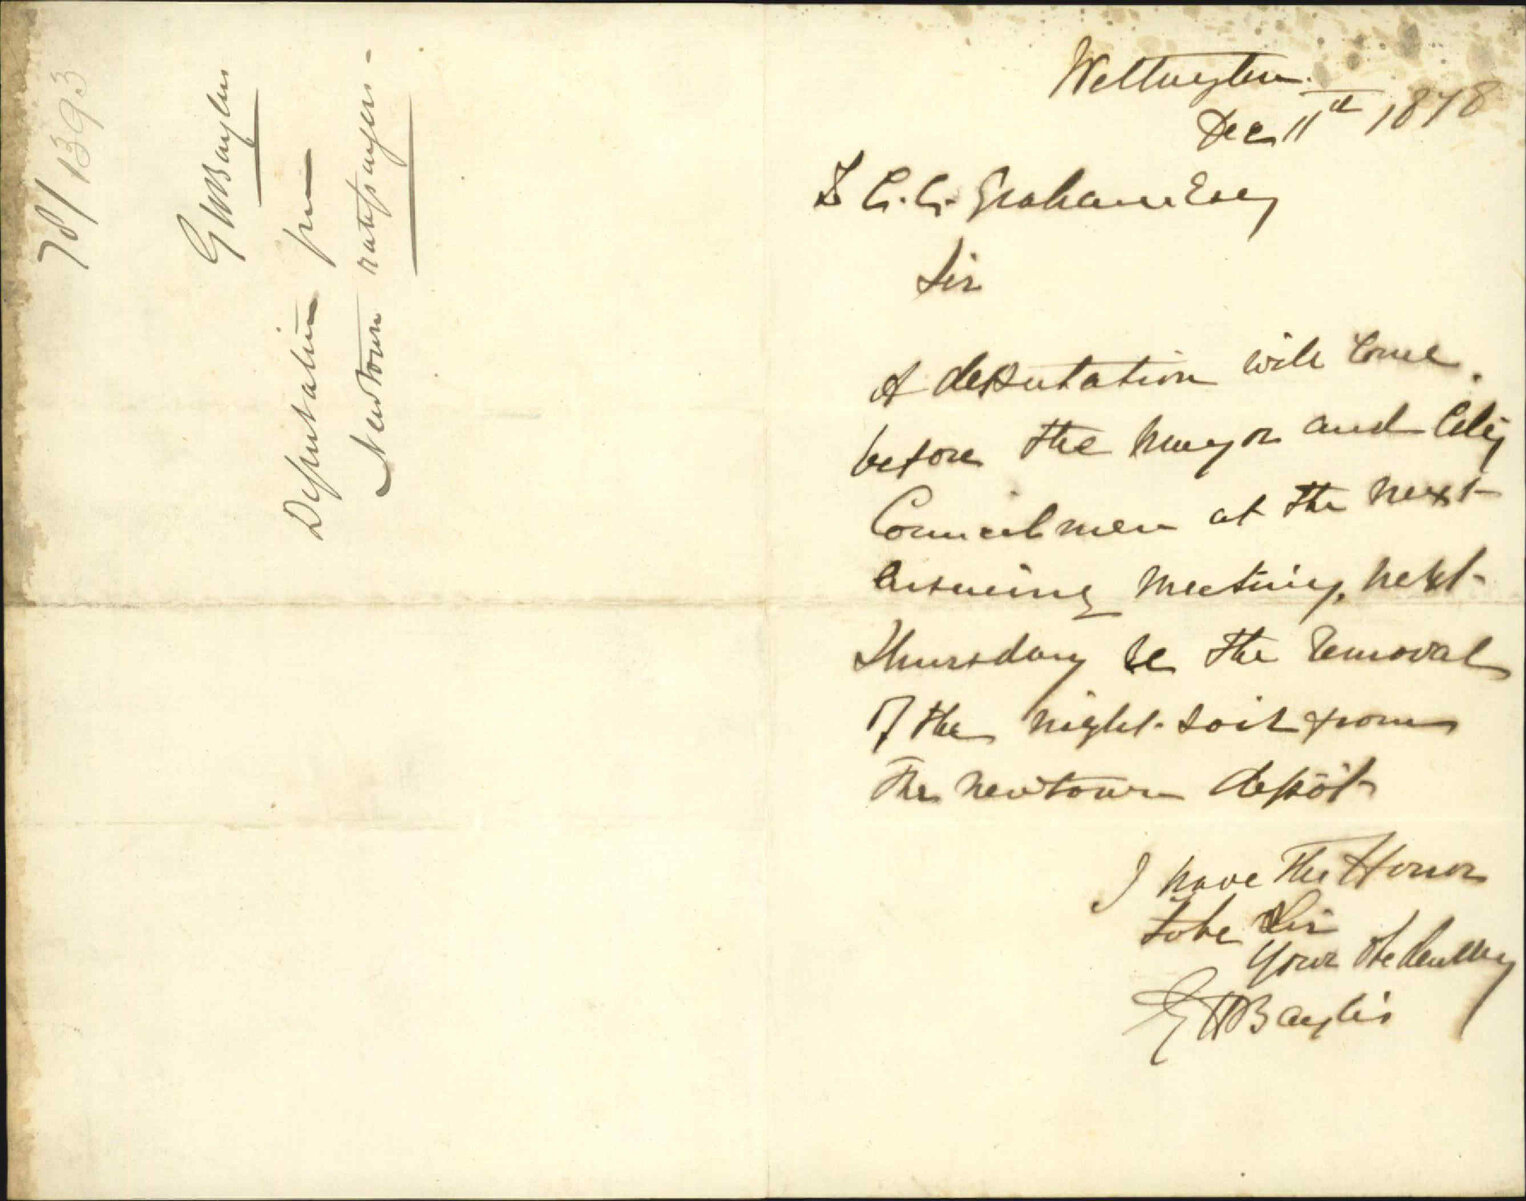 78/1393
G H Baylis
Deputation from
Newtown ratepayers -
Wellington
Dec 11th 1878
To C. C. Graham Esq
Sir
A deputation will come
before the Mayor and City
Councilmen at the next
ensuing meeting, next
Thursday re the removal
of the night-soil from
the newtown depôt
I have the Honor
to be Sir
Your Obediently
G H Baylis